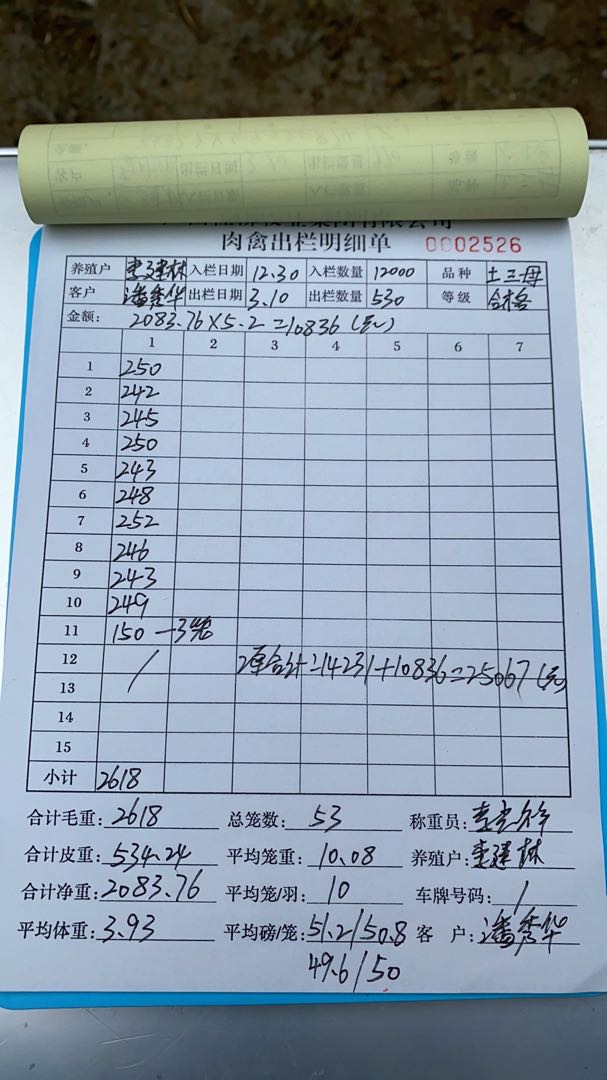 肉禽出栏明细单 0002526
养殖户 李建林 入栏日期 12.30 入栏数量 12000 品种 土三母
客户 潘秀华 出栏日期 3.10 出栏数量 530 等级 合格
金额: 2083.76×5.2=10836(元)
1 2 3 4 5 6 7
1 250
2 242
3 245
4 250
5 243
6 248
7 252
8 246
9 243
10 249
11 150 —3笼
12 / 2车合计=14231+10836=25067(元)
13
14
15
小计 2618
合计毛重: 2618 总笼数: 53 称重员:
合计皮重: 534.24 平均笼重: 10.08 养殖户: 李建林
合计净重: 2083.76 平均笼/羽: 10 车牌号码: /
平均体重: 3.93 平均磅/笼: 51.2/50.8 客户: 潘秀华
49.6/50